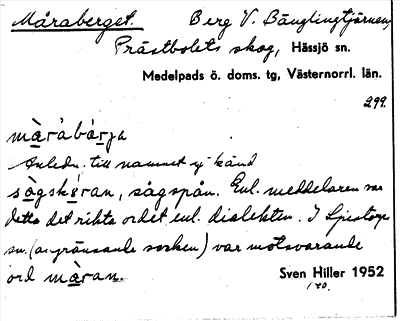 Måraberget. Berg V. Bänglingtjärnen,
Prästbolets skog, Hässjö sn.
Medelpads ö. doms. tg, Västernorrl. län.
299.
màrabàrja
Anledn. till namnet ej känd
sògskèran, sågspån. Enl. meddelaren var
detta det rikta ordet enl. dialekten. I Ljustorps
sn. (angränsande socken) var motsvarande
ord màran.
Sven Hiller 1952